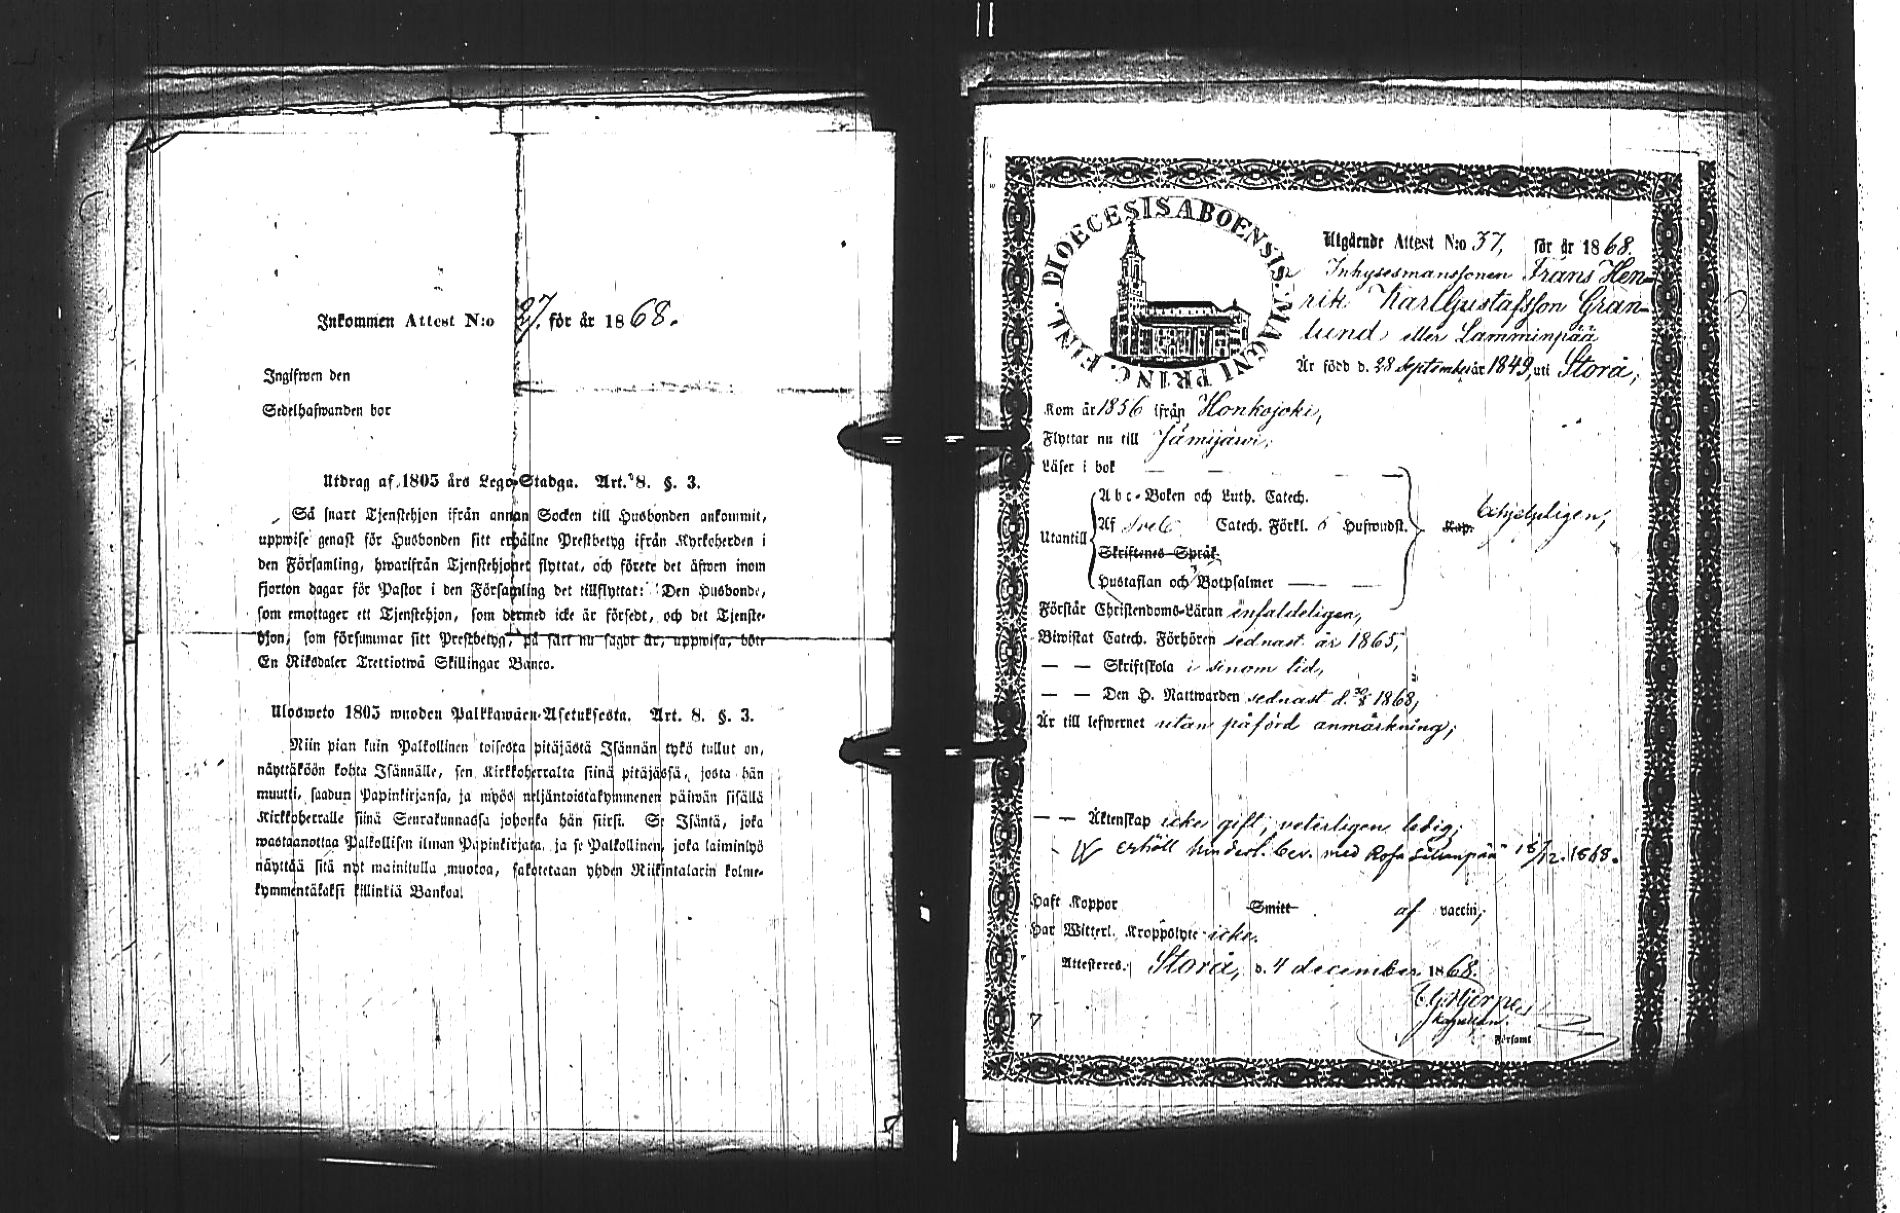 Inkommen Attest N:o 27. för år 1868.
Ingifwen den
Sedelhafwanden bor
Utdrag af 1805 års Lego-Stadga. Art. 8. §. 3.
Så snart Tjenstehjon ifrån annan Socken till Husbonden ankommit,
uppwise genast för Husbonden sitt erhållne Prestbetyg ifrån Kyrkoherden i
den Församling, hwarifrån Tjenstehjonet flyttat, och förete det äfwen inom
fjorton dagar för Pastor i den Församling det tillflyttat: Den Husbonde,
som emottager ett Tjenstehjon, som dermed icke är försedt, och det Tjenste-
hjon, som försummar sitt Prestbetyg, på sätt nu sagdt är, uppwisa, böte
En Riksdaler Trettiotwå Skillingar Banco.
Ulosweto 1805 wuoden Palkkawäen-Asetuksesta. Art. 8. §. 3.
Niin pian kuin Palkollinen toisesta pitäjästä Isännän tykö tullut on,
näyttäköön kohta Isännälle, sen Kirkkoherralta siinä pitäjässä, josta hän
muutti, saadun Papinkirjansa, ja myös neljäntoistakymmenen päiwän sisällä
Kirkkoherralle siinä Seurakunnassa johonka hän siirsi. Se Isäntä, joka
wastaanottaa Palkollisen ilman Papinkirjata, ja se Palkollinen, joka laiminlyö
näyttää sitä nyt mainitulla muotoa, sakotetaan yhden Riikintalarin kolme-
kymmentäkaksi killinkiä Bankoa.
DIOECESIS ABOENSIS. MAGNI PRINC. FINL.
Utgående Attest N:o 37, för år 1868.
Inhysesmanssonen Frans Hen-
rik Karl Gustafsson Gran-
lund eller Lamminpää
Är född d. 28 September år 1849, uti Storå,
Kom år 1856 ifrån Honkojoki,
Flyttar nu till Jämijärwi,
Läser i bok — — —
Utantill
Abc-Boken och Luth. Catech.
Af Sveb. Catech. Förkl. 6 Hufwudst.
Skriftenes Språk.
Hustaflan och 7 Botpsalmer — —
Förswarligen,
Förstår Christendoms-Läran enfaldeligen,
Biwistat Catech. Förhören sednast år 1865,
— — Skriftskola i sinom tid,
— — Den H. Nattwarden sednast d. 1868,
Är till lefwernet utan påförd anmärkning,
— — Äktenskap icke gift, veterligen ledig;
erhöll hindersl. bev. med Rosa 18/12. 1868.
Haft Koppor Smitt af vaccin,
Har Witterl. Kroppslyte icke.
Attesteres. Storå, d. 4 december 1868.
Kapellan.
Församl